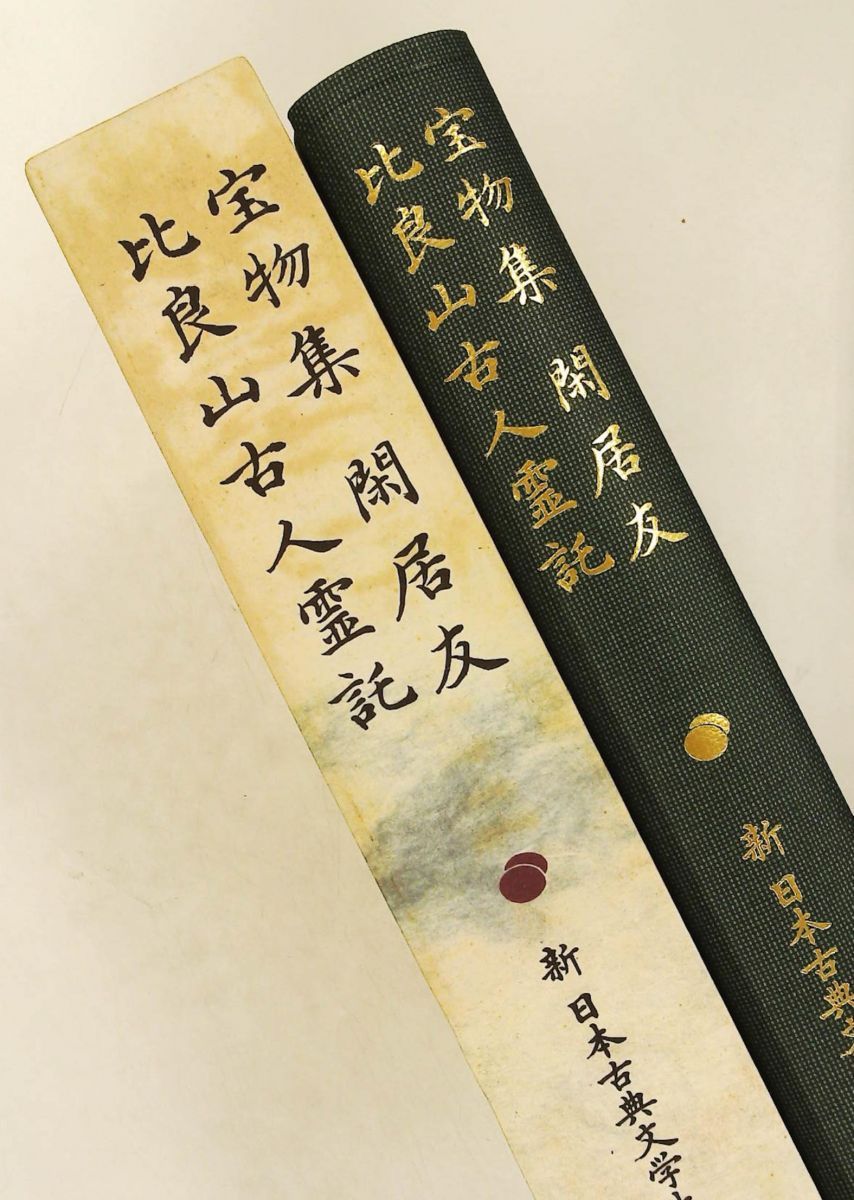 宝物集 閑居友
比良山古人霊託
新 日本古典文学
宝物集 閑居友
比良山古人霊託
新 日本古典文